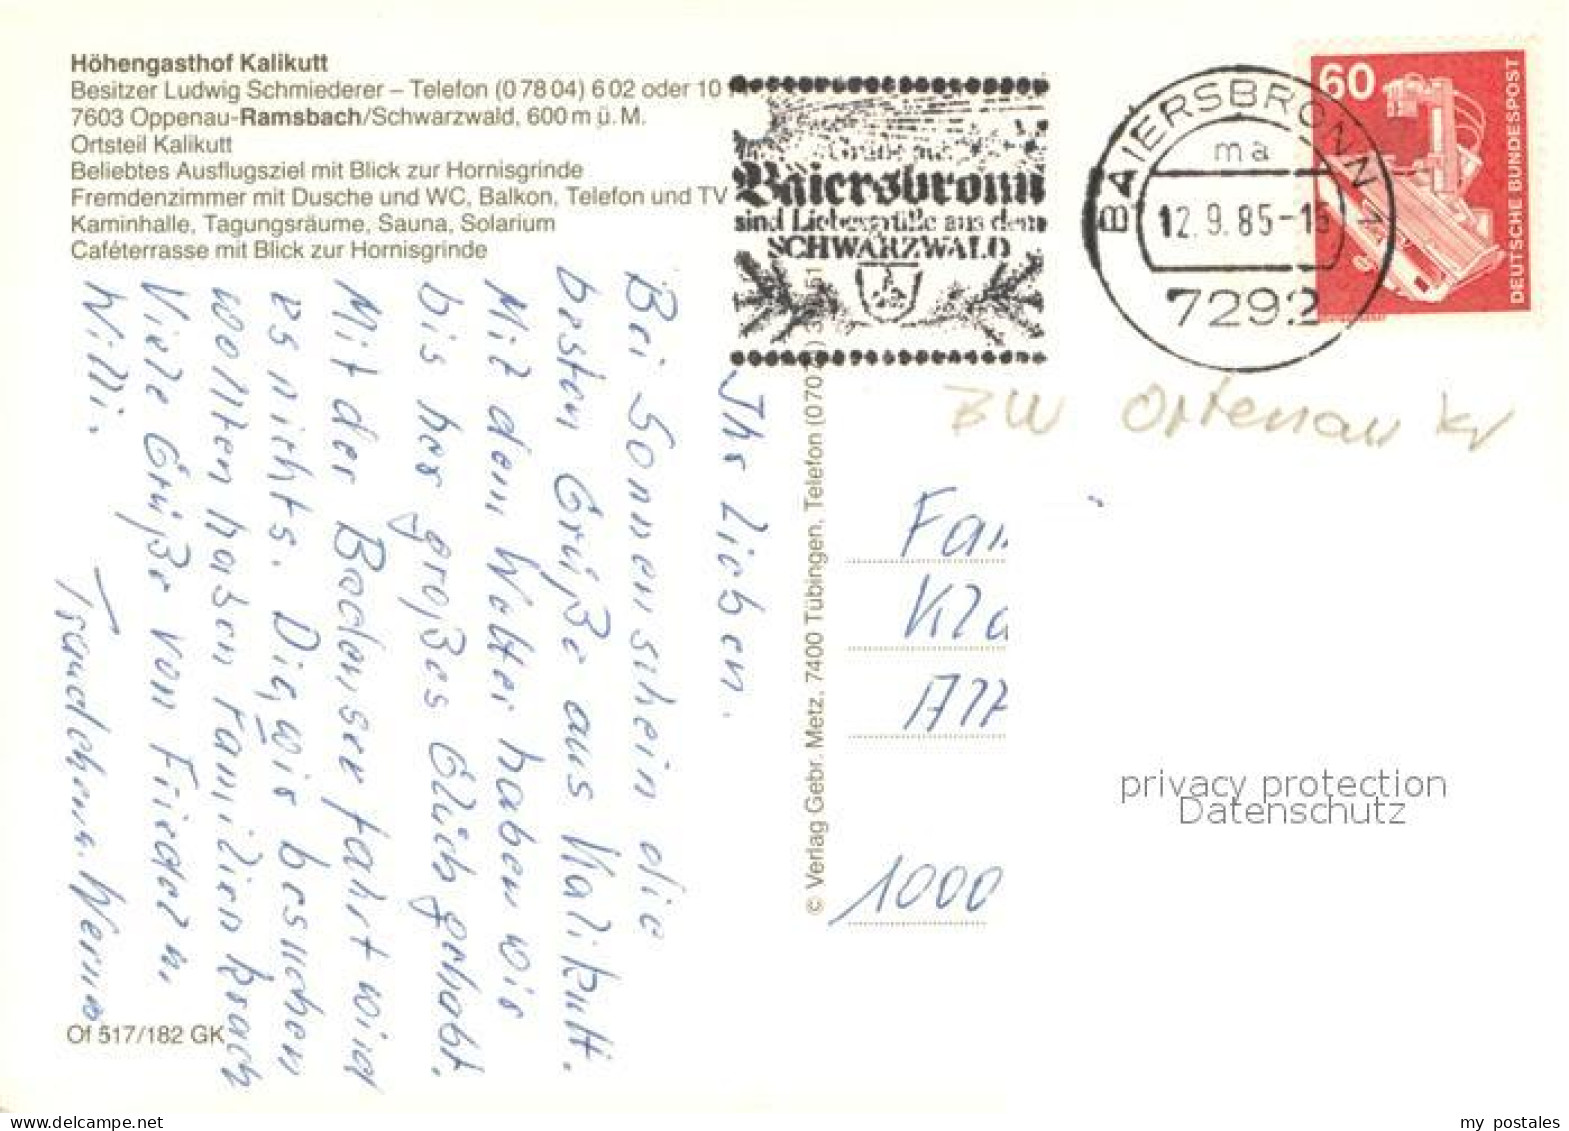 Höhengasthof Kalikutt
Besitzer Ludwig Schmiederer – Telefon (0 78 04) 6 02 oder 10
7603 Oppenau-Ramsbach/Schwarzwald, 600 m ü. M.
Ortsteil Kalikutt
Beliebtes Ausflugsziel mit Blick zur Hornisgrinde
Fremdenzimmer mit Dusche und WC, Balkon, Telefon und TV
Kaminhalle, Tagungsräume, Sauna, Solarium
Caféterrasse mit Blick zur Hornisgrinde
Baiersbronn
sind Liebesgrüße aus dem
SCHWARZWALD
BAIERSBRONN 1
ma
12.9.85-
7292
60
DEUTSCHE BUNDESPOST
BW Ortenau Kr
Ihr Lieben.
Bei Sonnenschein die
besten Grüße aus Kalikutt.
Mit dem Wetter haben wir
bis her großes Glück gehabt.
Mit der Bodensee fahrt wird
es nichts. Die, wir besuchen
wollten haben Familien krach
Viele Grüße von Friedel u.
Willi.
Traudchen u. Werner
© Verlag Gebr. Metz, 7400 Tübingen, Telefon (070
51
Fam
Kla
Alt
1000
privacy protection
Datenschutz
Of 517/182 GK
my postales